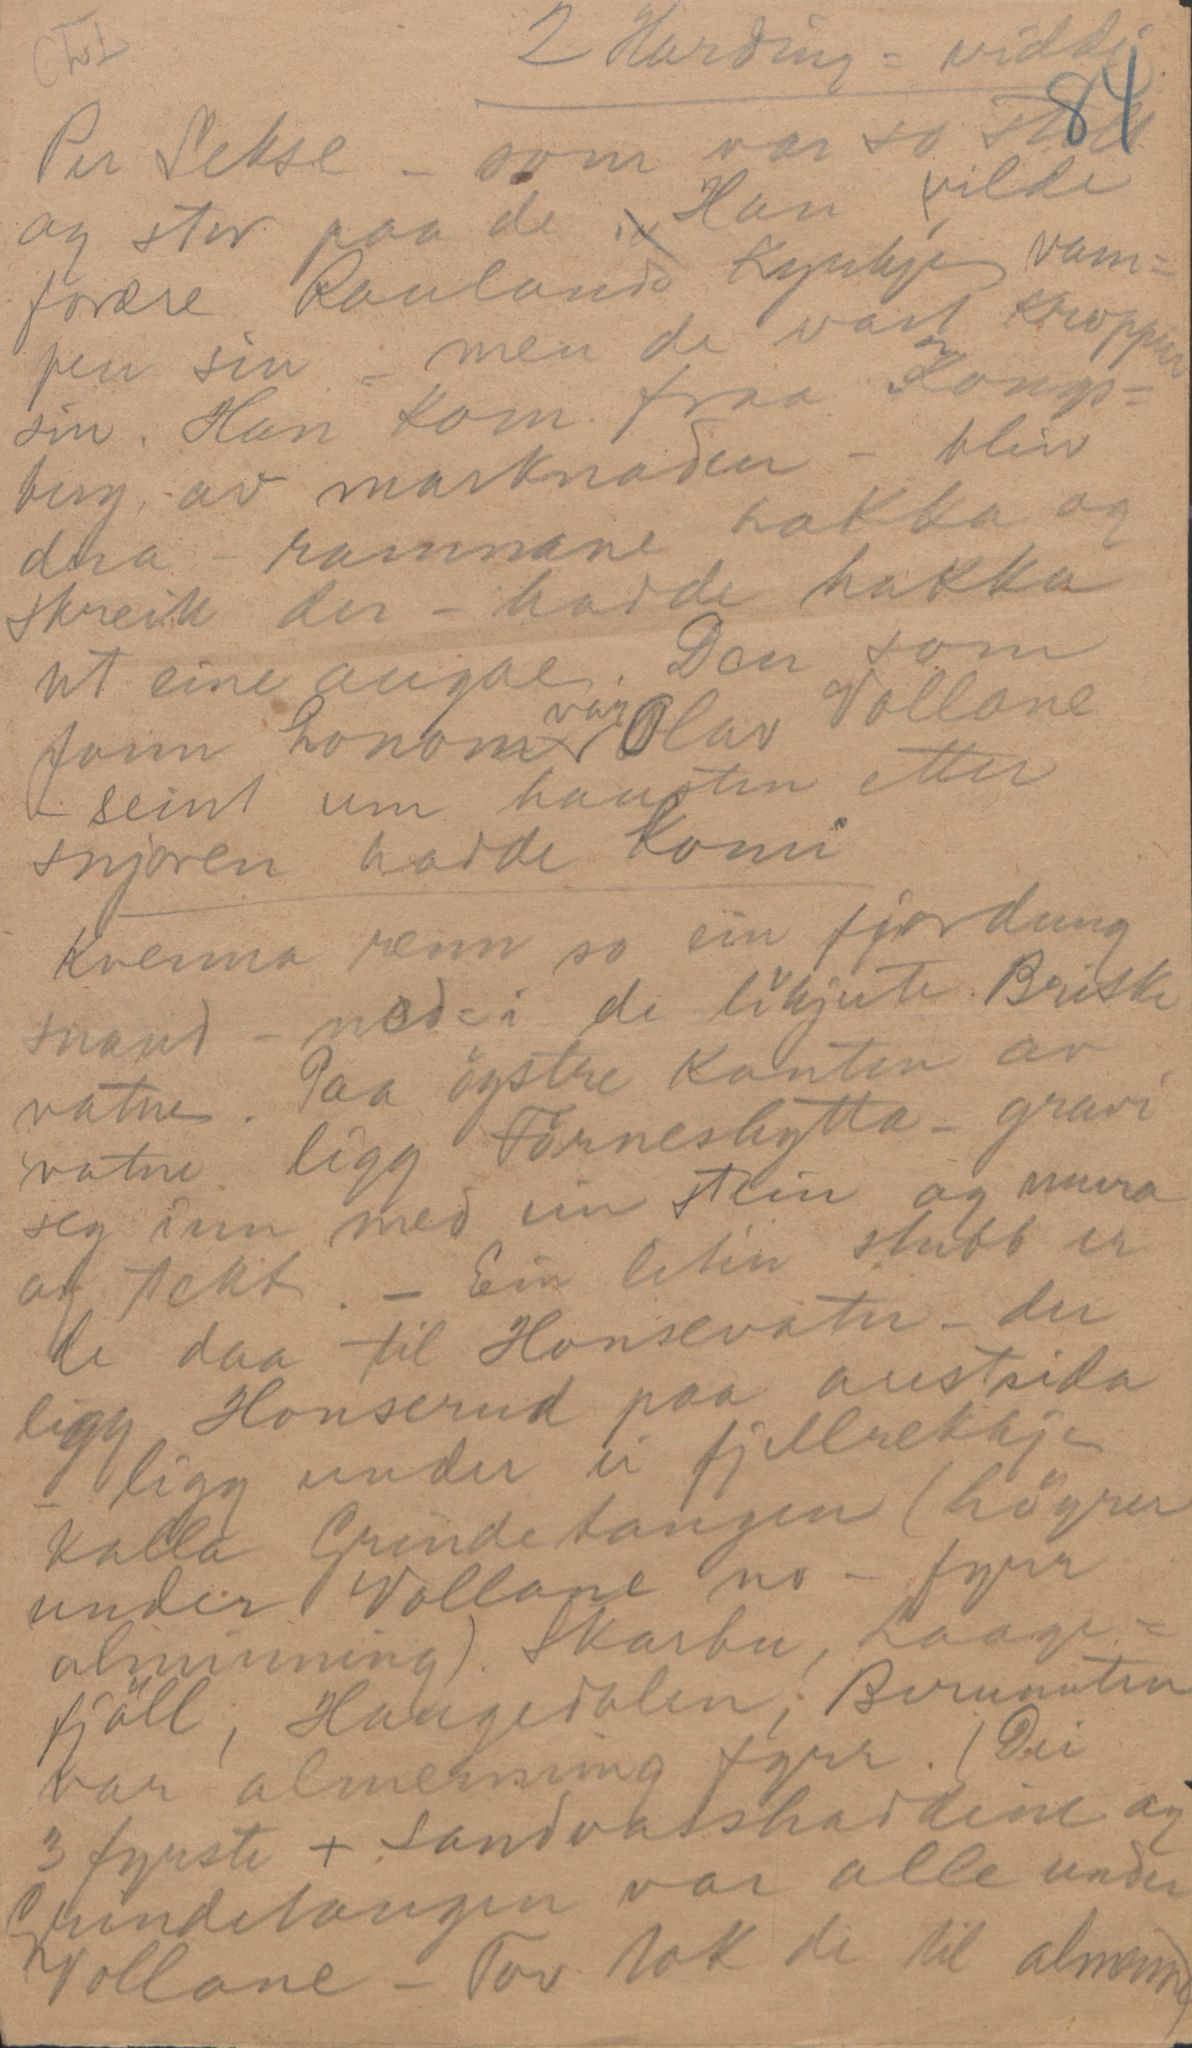 2 Harding = viddi
84
Per Sekse - som var so
og stor paa de Han vilde
forære Raulands Kyrkje vam=
pen sin - men de vart kroppen
sin. Han kom fraa Kongs=
berg, av marknaden - bleiv
drea - ramnane hakka og
skreik der - hadde hakka
ut eine augae. Den som
fann honom var Olav Vollane
- seint um hausten etter
snjoren hadde komi
Kvenna renn so ein fjordung
snaud - ned i de likjute Briske
vatne. Paa öystre kanten av
vatne ligg Förneshytta - gravi
seg inn med ein stein og mura
og tekt. - Ein liten stubb er
de daa til Honsevatn - der
ligg Honserud paa austsida
- ligg under ei fjellrekkje
kalla Grindetangen (höyrer
under Vollane no - fyrr
almenning). Skarbu, Laage=
fjöll, Haugedalen, Birunuten
var almenning fyrr. (Dei
3 fyrste + Sandvasshaddine og
Grindetangen var alle under
Vollane - Tov tok de til almenni)